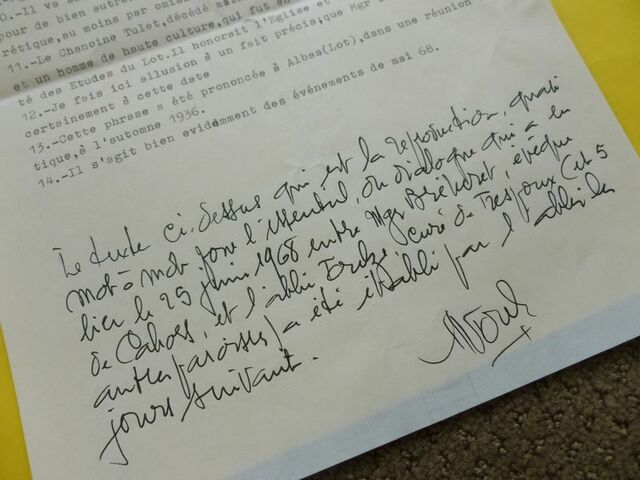 0.-Il va s
pour de bien autre
rétique,au moins par omis
11.-Le Chanoine Tulet,décédé mai
et un homme de haute culture,qui fut
té des Etudes du Lot.Il honorait l'Eglise et
12.-Je fais ici allusion à un fait précis;que Mgr
certainement à cette date
13.-Cette phrase a été prononcée à Albas(Lot),dans une réunion
tique,à l'automne 1936.
14.-Il s'agit bien evidémment des événements de mai 68.
Le texte ci-dessus qui est la reproduction, quasi
mot à mot pour l'essentiel, du dialogue qui a eu
lieu le 25 juin 1968 entre Mgr Bréheret, évêque
de Cahors, et l'abbé curé de Trespoux (et 5
autres paroisses) a été établi par l'abbé les
jours suivant.